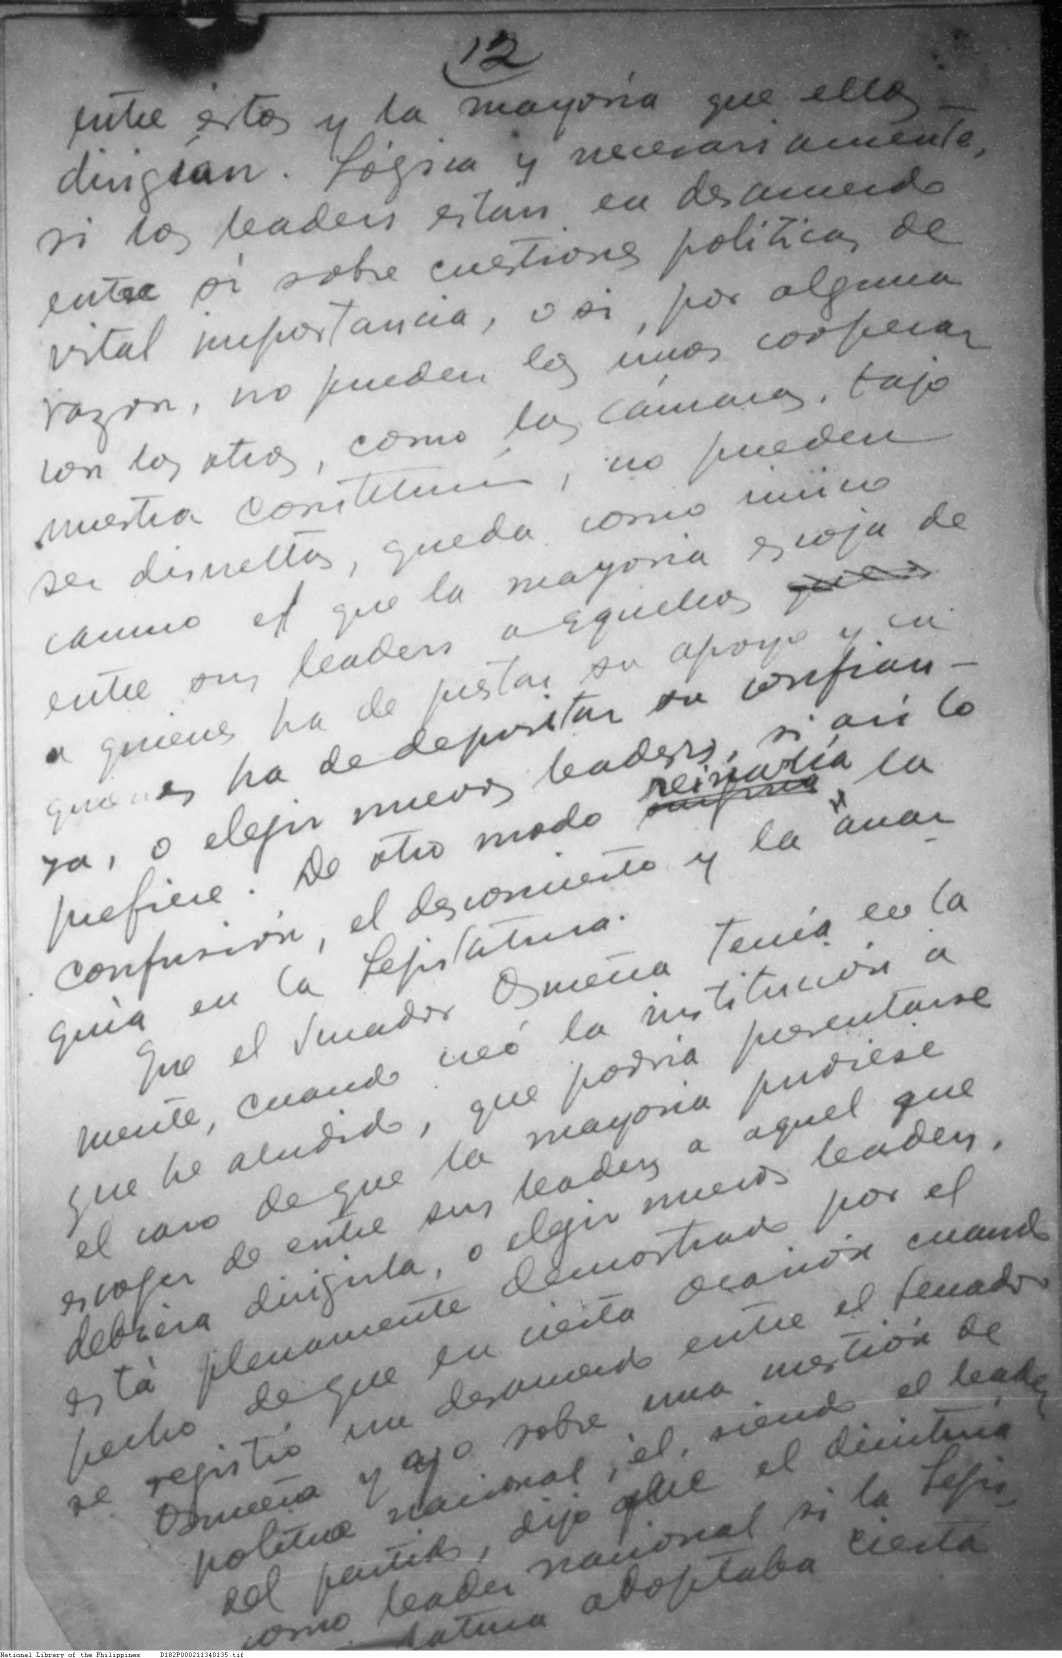 12
entre éstos y la mayoría que ellos
dirigían. Lógica y necesariamente,
si los leaders están en desacuerdo
entre sí sobre cuestiones políticas de
vital importancia, o si, por alguna
razón, no pueden los unos cooperar
con los otros, como las cámaras, bajo
nuestra Constitución, no pueden
ser disueltas, queda como único
camino el que la mayoría escoja de
entre sus leaders a aquellos
a quienes ha de prestar su apoyo y en
quienes ha de depositar su confian-
za, o elejir nuevos leaders, si así lo
prefiere. De otro modo reinaría la
confusión, el desconcierto y la "anar
quía en la Lejislatura.
Que el Senador Osmeña tenía en la
mente, cuando creó la institución a
que he aludido, que podría presentarse
el caso de que la mayoría pudiese
escojer de entre sus leaders a aquel que
debiera dirigirla, o elejir nuevos leaders,
está plenamente demostrado por el
hecho de que en cierta ocasión cuando
se registró un desacuerdo entre el Senador
Osmeña y yo sobre una cuestión de
política nacional, él, siendo el leader
del partido, dijo que el dimitiría
como leader nacional si la Lejis
latura adoptaba cierta
National Library of the Philippines D182P000211340135.tif